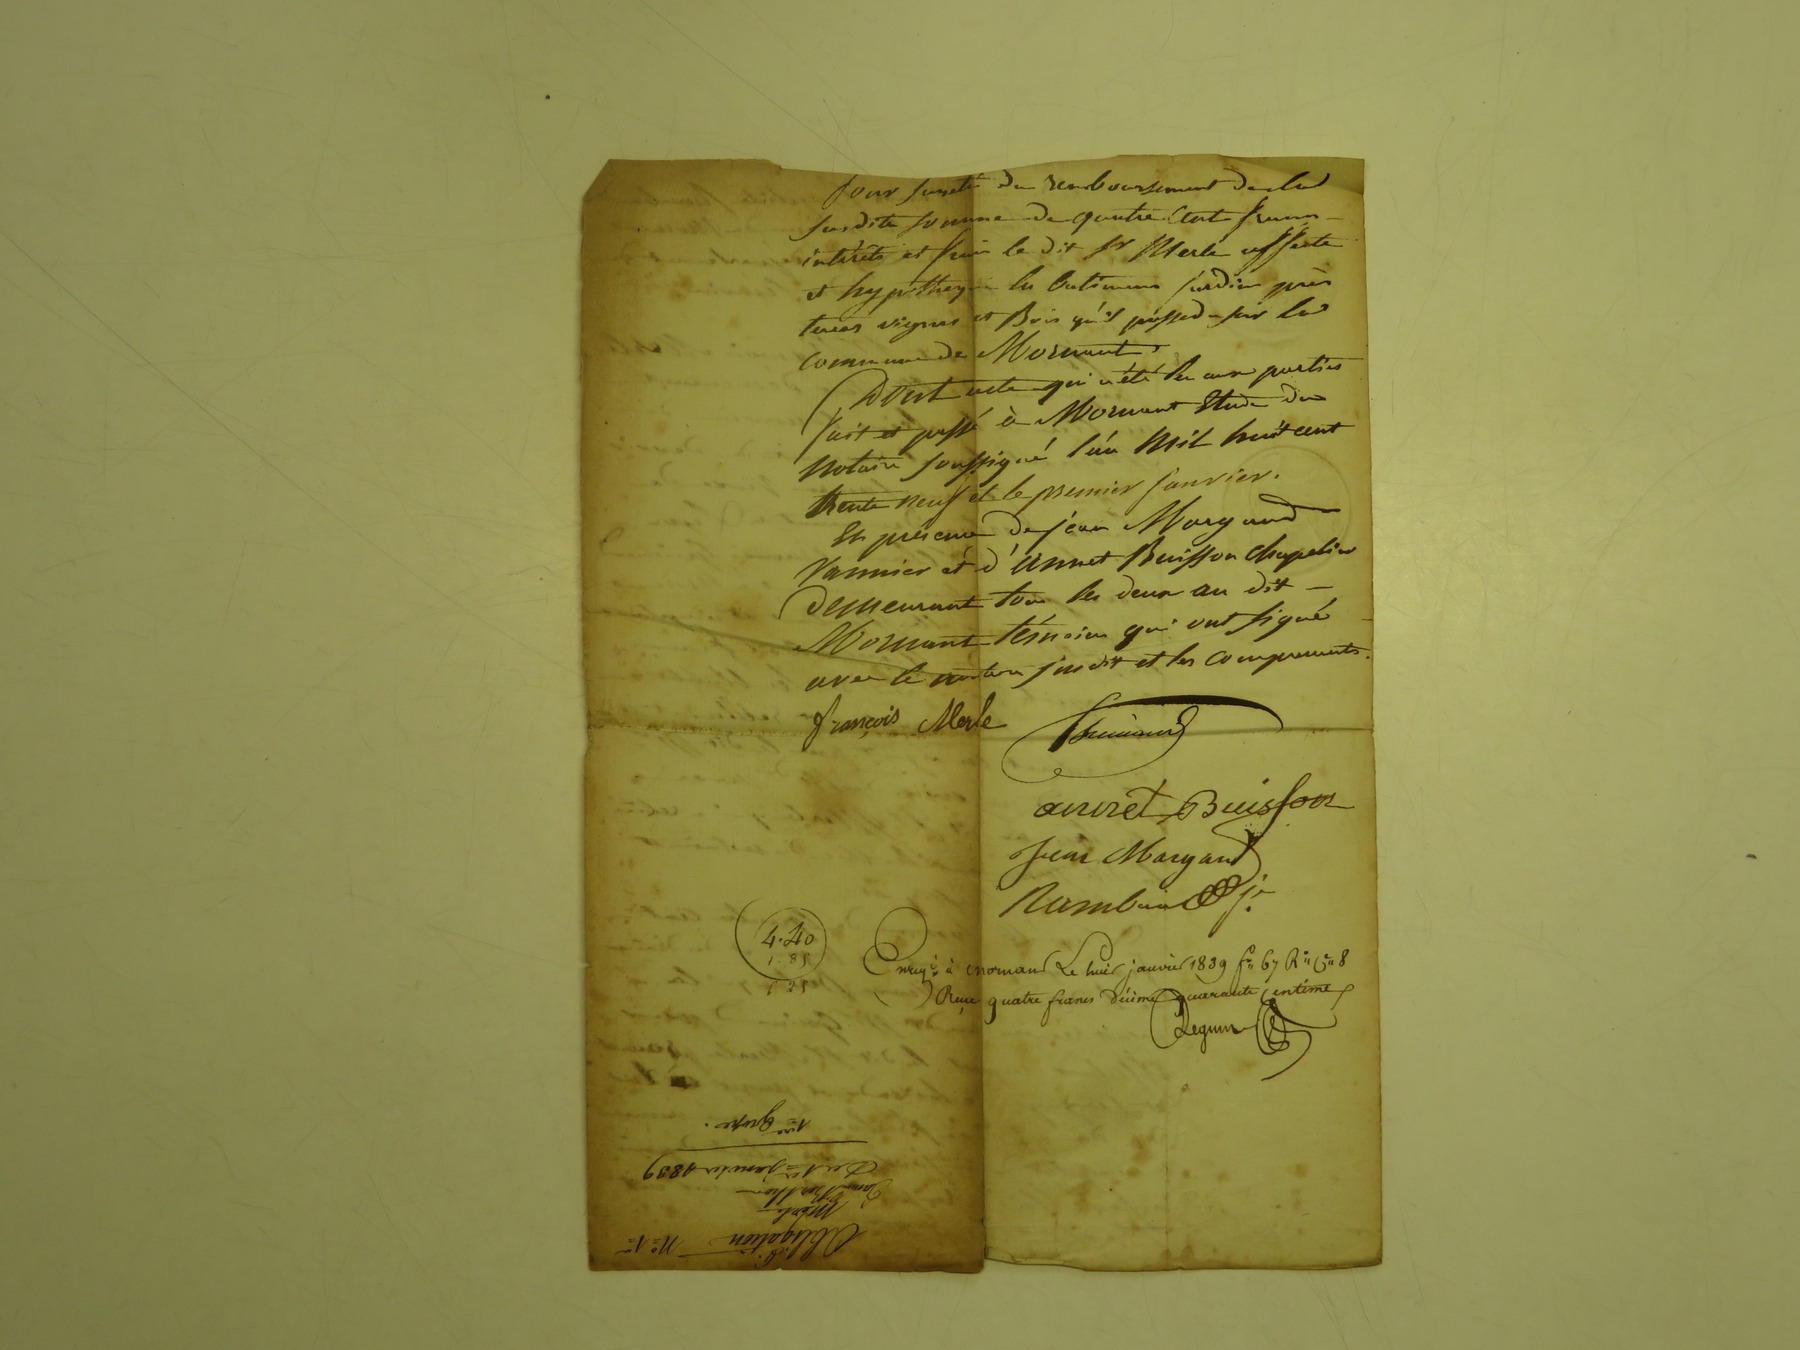 Pour sureté du remboursement de la
susdite somme de quatre cent francs
intérêts et frais le dit Sr Merle affecte
et hypotheque les batimens jardin près
terres vignes et Bois qu'il possede sur la
commune de Mornant.
Dont acte qui a été lu aux parties
fait et passé à Mornant Etude du
Notaire soussigné l'an Mil huit cent
trente neuf et le premier janvier.
En présence de jean Margand
Vannier et d'annet Buisson chapelier
demeurant tous les deux au dit
Mornant témoins qui ont signé
avec le notaire susdit et les comparants.
françois Merle
annet Buisson
Jean Margand
4.40
1.85
6.25
Enregé à mornant Le huit janvier 1839 fo 67 Ro Ce 8
Reçu quatre francs décime quarante centime
1ere Grosse.
Du 1er Janvier 1839
Merle
Obligation No 1er